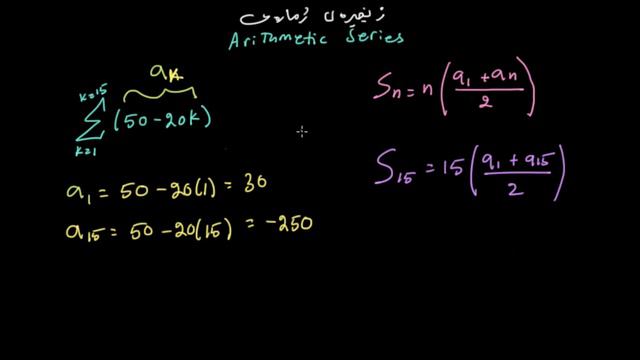 زنجیرەی ژمارەیی
Arithmetic Series
a_k
\sum_{k=1}^{k=15} (50 - 20k)
S_n = n\left(\frac{a_1 + a_n}{2}\right)
S_{15} = 15\left(\frac{a_1 + a_{15}}{2}\right)
a_1 = 50 - 20(1) = 30
a_{15} = 50 - 20(15) = -250